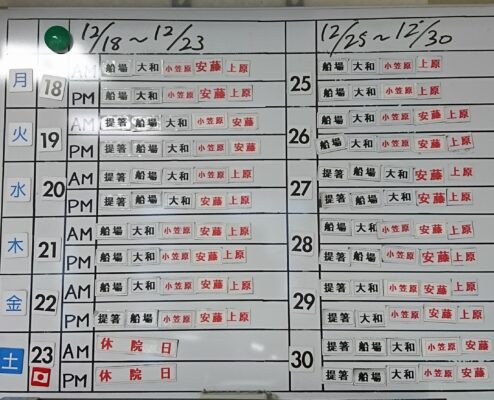 12/18~12/23 12/25~12/30
月 18 AM 船場 大和 小笠原 安藤 上原 25 船場 大和 小笠原 上原
PM 船場 大和 小笠原 安藤 上原 船場 大和 小笠原 上原
火 19 AM 提箸 船場 大和 小笠原 安藤 26 船場 大和 小笠原 安藤 上原
PM 提箸 船場 大和 小笠原 安藤 船場 大和 小笠原 安藤 上原
水 20 AM 提箸 船場 大和 小笠原 上原 27 提箸 船場 大和 安藤 上原
PM 提箸 船場 大和 小笠原 上原 提箸 船場 大和 安藤 上原
木 21 AM 船場 大和 小笠原 安藤 上原 28 船場 大和 小笠原 安藤 上原
PM 船場 大和 小笠原 安藤 上原 提箸 船場 小笠原 安藤 上原
金 22 AM 船場 大和 小笠原 安藤 上原 29 提箸 大和 小笠原 安藤 上原
PM 提箸 船場 小笠原 安藤 上原 提箸 大和 小笠原 安藤 上原
土 23 AM 休院日 30 提箸 船場 大和 小笠原 安藤
PM 休院日 提箸 船場 大和 小笠原 安藤